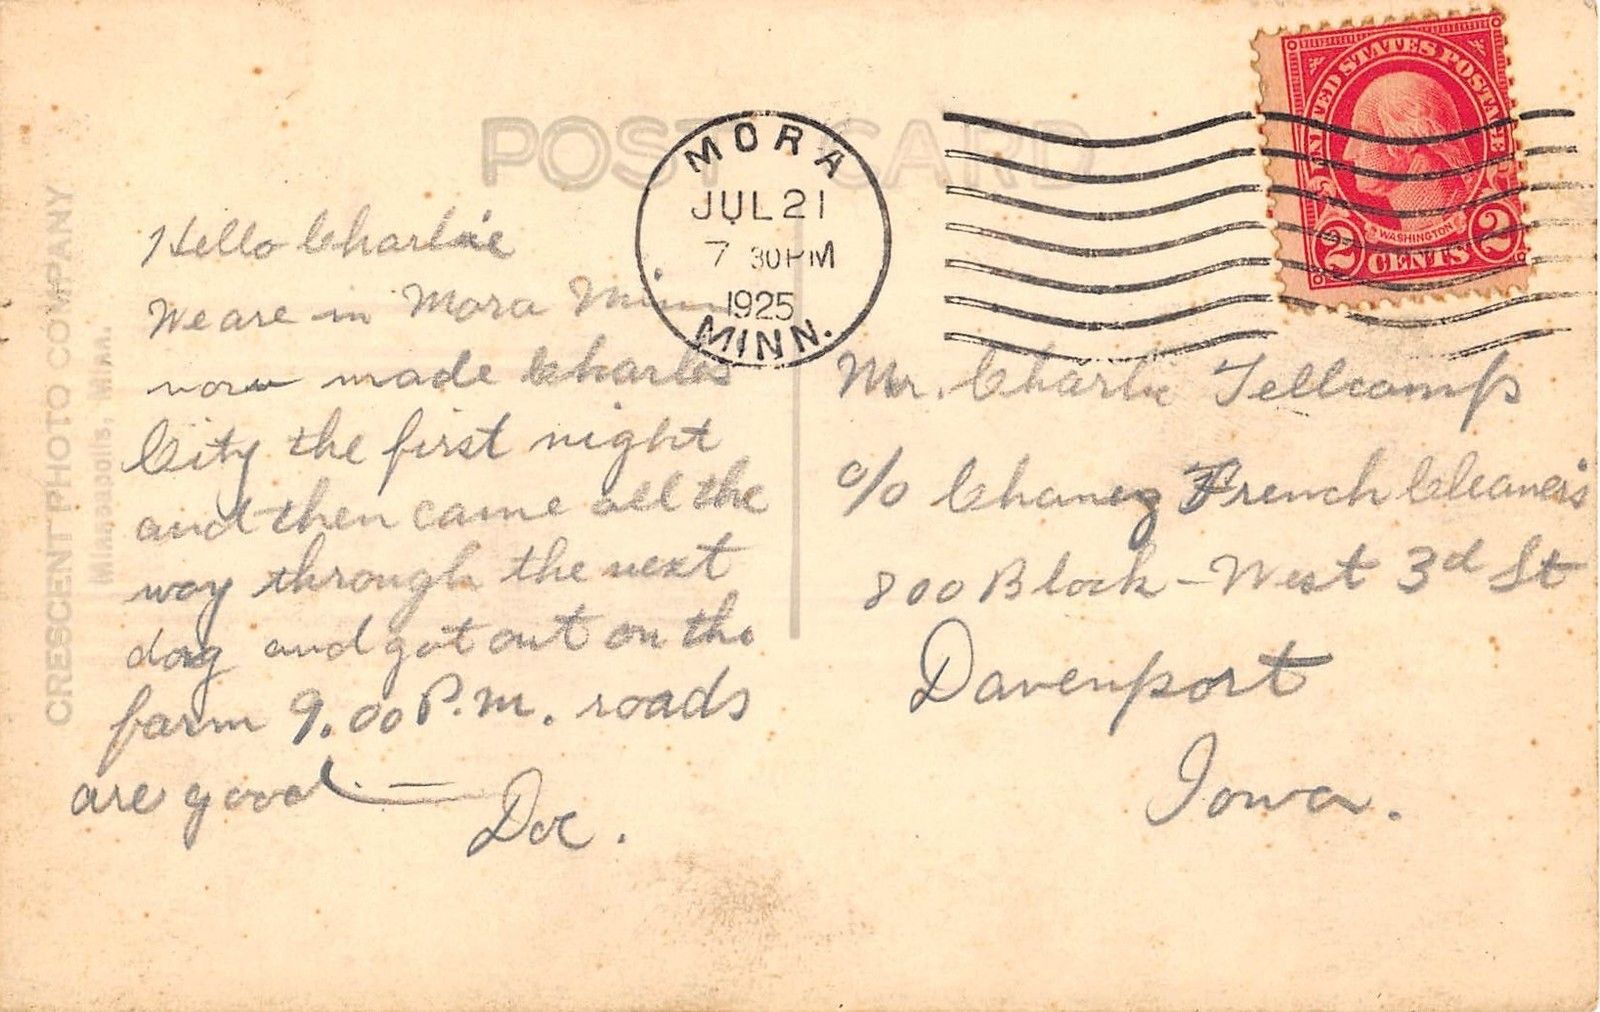 POST CARD
MORA
JUL 21
7 30 PM
1925
MINN.
UNITED STATES POSTAGE
WASHINGTON
2 CENTS 2
CRESCENT PHOTO COMPANY
Minneapolis, Minn.
Hello Charlie
We are in Mora Minn
now made Charles
City the first night
and then came all the
way through the next
day and got out on the
farm 9.00 P.m. roads
are good —
Doc.
Mr. Charlie Tellcamp
c/o Chaney French Cleaners
800 Block - West 3d St
Davenport
Iowa.